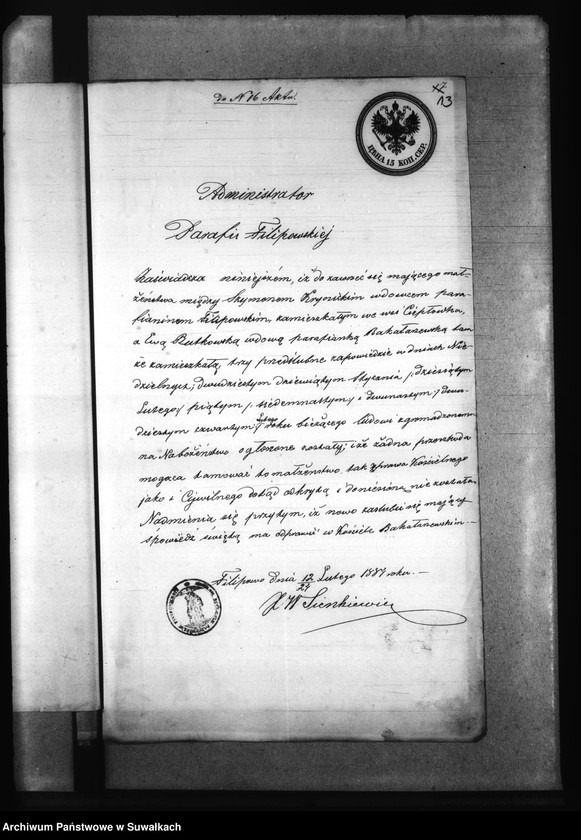 do N 16 Aktu.
13
ЦѢНА 15 КОП. СЕР.
Administrator
Parafii Filipowskiej
Zaświadcza niniejszém, iż do zawrzeć się mającego mał-
żeństwa między Szymonem Krynickim wdowcem para-
fianinem Filipowskim, zamieszkałym we wsi Czéptówka,
a Ewą Butkowską wdową parafianką Bakałarzewską tam
że zamieszkałą, trzy przedślubne zapowiedzie w dniach Nie-
dzielnych; dwudziestym dziewiątym Stycznia /: dziesiątym
Lutego / piątym /: siedemnastym / i dwunastym / dwu-
dziestym czwartym / Lutego roku bieżącego ludowi zgromadzonemu
na Nabożeństwo ogłoszone zostały; i że żadna przeszkoda
mogąca tamować to małżeństwo tak z prawa Kościelnego
jako i Cywilnego dotąd odkrytą i doniesioną nie została.
Nadmienia się przytym, iż nowo zaślubić się mający
spowiedź świętą ma odprawić w Kościele Bakałarzewskim.—
Filipowo dnia 12/24 Lutego 1884 roku.—
X W Sienkiewicz
Archiwum Państwowe w Suwałkach